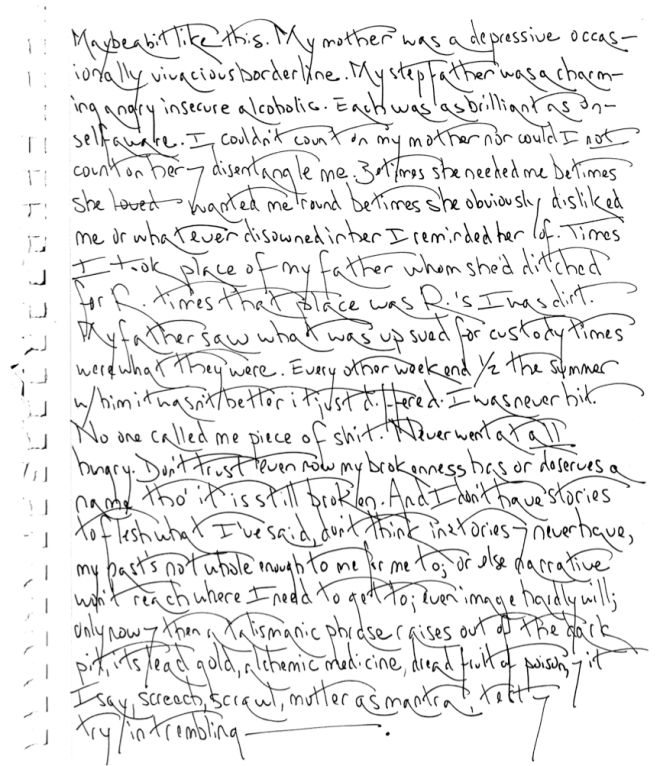 Maybe a bit like this. My mother was a depressive occas-
ionally vivacious borderline. My stepfather was a charm-
ing angry insecure alcoholic. Each was as brilliant as un-
selfaware. I couldn't count on my mother nor could I not
count on her – disentangle me. Betimes she needed me betimes
she loved wanted me 'round betimes she obviously disliked
me or whatever disowned in her I reminded her of. Times
I took place of my father whom she'd ditched
for R. times that place was R.'s I was dirt.
My father saw what was up sued for custody times
were what they were. Every other weekend ½ the summer
w/ him it wasn't better it just differed. I was never hit.
No one called me piece of shit. Never went at all
hungry. Don't trust even now my brokenness has or deserves a
name tho' it is still broken. And I don't have stories
to flesh what I've said, don't think in stories – never have,
my past's not whole enough to me for me to; or else narrative
won't reach where I need to get to; even image hardly will;
only now – then a talismanic phrase raises out of the dark
pit, its lead gold, alchemic medicine, dread fruit of poison, – it
I say, screech, scrawl, mutter as mantra, text –
try / in trembling .